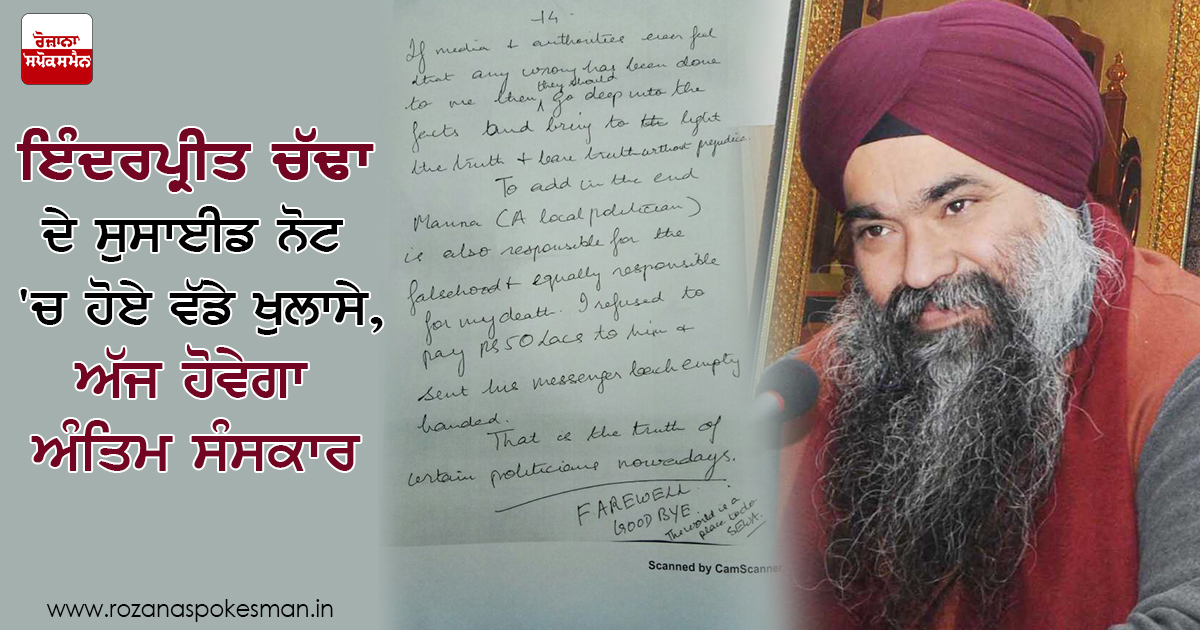 ਰੋਜ਼ਾਨਾ
ਸਪੋਕਸਮੈਨ
ਇੰਦਰਪ੍ਰੀਤ ਚੱਢਾ
ਦੇ ਸੁਸਾਈਡ ਨੋਟ
'ਚ ਹੋਏ ਵੱਡੇ ਖੁਲਾਸੇ,
ਅੱਜ ਹੋਵੇਗਾ
ਅੰਤਿਮ ਸੰਸਕਾਰ
www.rozanaspokesman.in
-14-
If media & authorities ever feel
that any wrong has been done
to me then they should go deep into the
facts and bring to light
the truth & bare truth without prejudice.
To add in the end
Manna (A local politician)
is also responsible for the
falsehood & equally responsible
for my death. I refused to
pay Rs 50 Lacs to him &
sent his messenger back empty
handed.
That is the truth of
certain politicians nowadays.
FAREWELL
GOOD BYE
The world is a
place to do
SEWA.
Scanned by CamScanner